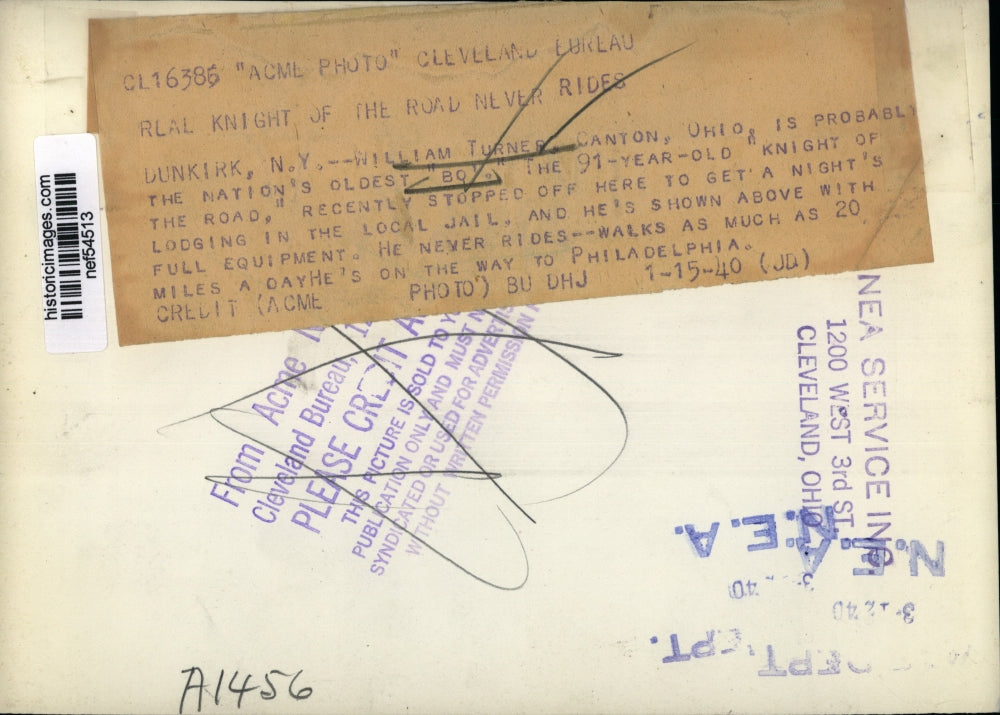 CL16386 "ACME PHOTO" CLEVELAND BUREAU
REAL KNIGHT OF THE ROAD NEVER RIDES
DUNKIRK, N.Y.--WILLIAM TURNER, CANTON, OHIO, IS PROBABLY
THE NATION'S OLDEST "BO." THE 91-YEAR-OLD "KNIGHT OF
THE ROAD," RECENTLY STOPPED OFF HERE TO GET A NIGHT'S
LODGING IN THE LOCAL JAIL, AND HE'S SHOWN ABOVE WITH
FULL EQUIPMENT. HE NEVER RIDES--WALKS AS MUCH AS 20
MILES A DAYHE'S ON THE WAY TO PHILADELPHIA.
CREDIT (ACME PHOTO) BU DHJ 1-15-40 (JD)
historicimages.com
nef54513
From Acme
Cleveland Bureau,
PLEASE CREDIT
THIS PICTURE IS SOLD TO
PUBLICATION ONLY AND MUST
SYNDICATED OR USED FOR
WITHOUT WRITTEN PERMISSION
NEA SERVICE INC.
1200 WEST 3rd ST
CLEVELAND, OHIO
N.E.A.
N.E.A.
40
3- 40
DEPT.
DEPT
A1456